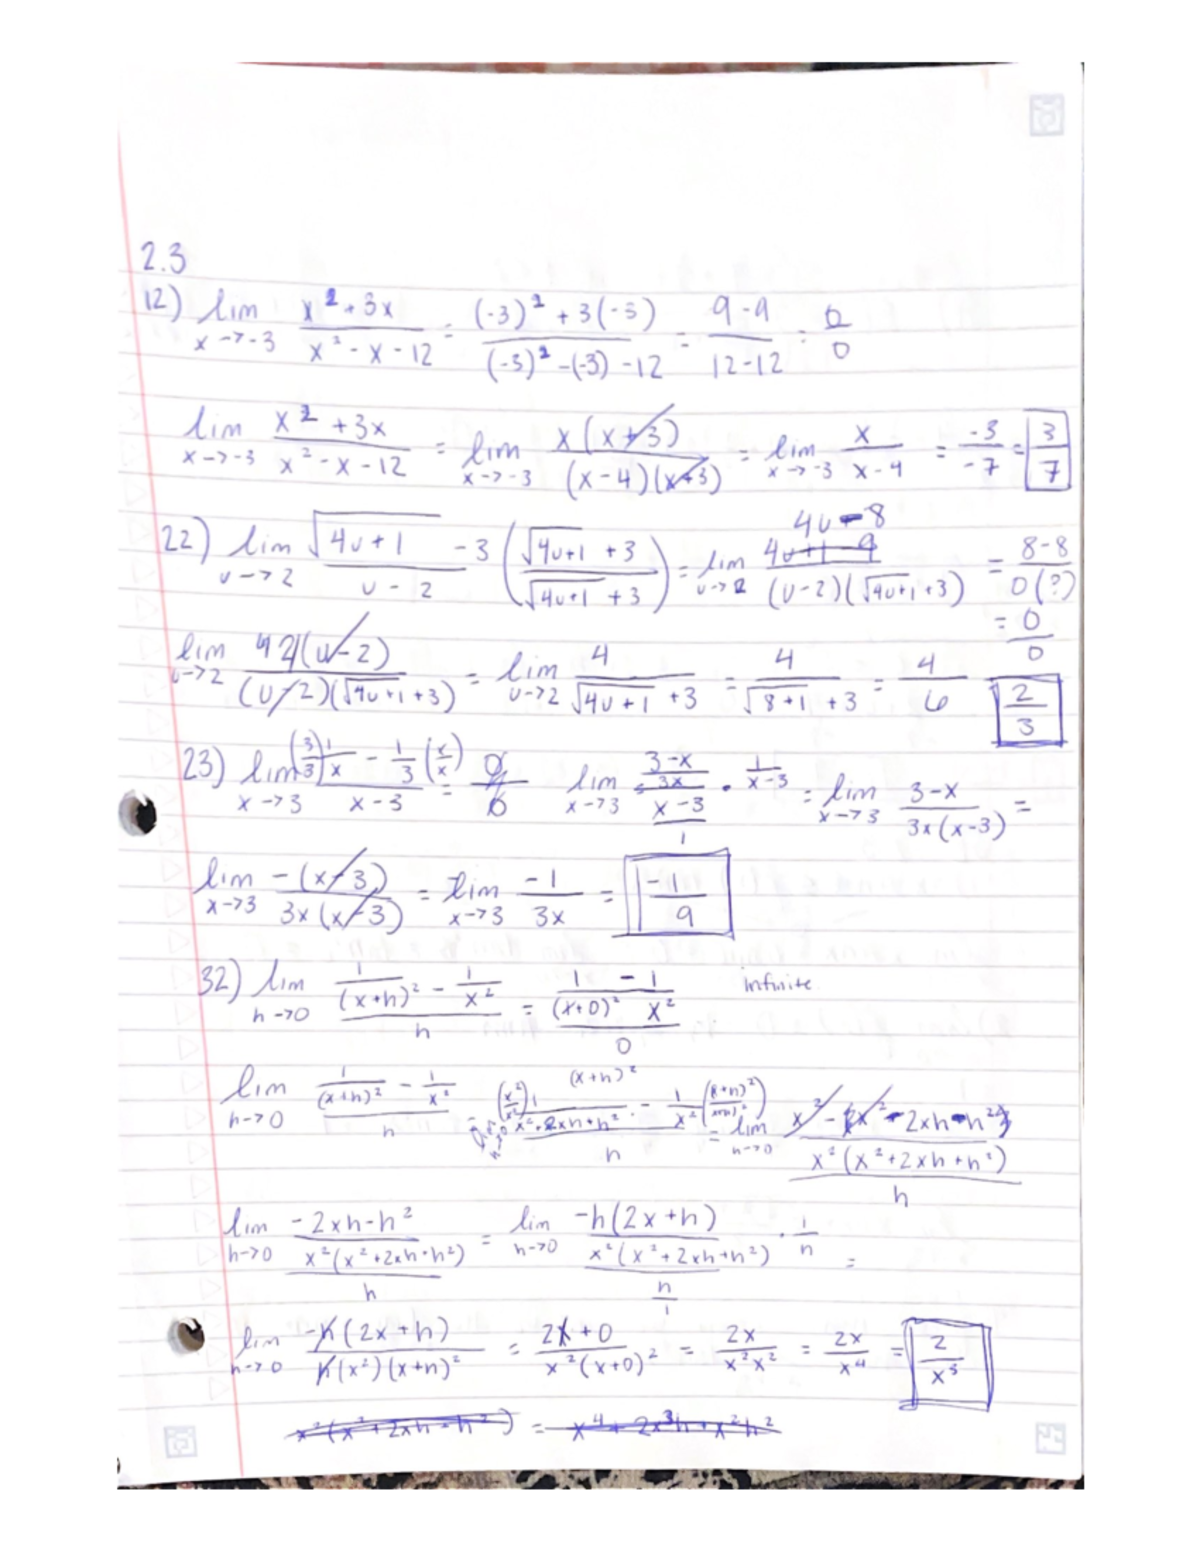 2.3
12) lim x→-3 (x² + 3x)/(x² - x - 12) = ((-3)² + 3(-3))/((-3)² - (-3) - 12) = (9 - 9)/(12 - 12) = 0/0
lim x→-3 (x² + 3x)/(x² - x - 12) = lim x→-3 (x(x+3))/((x-4)(x+3)) = lim x→-3 x/(x-4) = -3/-7 = 3/7
22) lim u→2 (√(4u+1) - 3)/(u - 2) ((√(4u+1) + 3)/(√(4u+1) + 3)) = lim u→2 (4u - 8)/((u-2)(√(4u+1) + 3)) = (8-8)/(0(?)) = 0/0
lim u→2 (4(u-2))/((u-2)(√(4u+1) + 3)) = lim u→2 4/(√(4u+1) + 3) = 4/(√(8+1) + 3) = 4/6 = 2/3
23) lim x→3 ((3/3) 1/x - 1/3 (x/x))/(x-3) = 0/0 lim x→3 ((3-x)/3x)/((x-3)/1) · 1/(x-3) = lim x→3 (3-x)/(3x(x-3)) =
lim x→3 (-(x-3))/(3x(x-3)) = lim x→3 -1/3x = -1/9
32) lim h→0 (1/(x+h)² - 1/x²)/h = (1/(x+0)² - 1/x²)/0 infinite
lim h→0 (1/(x+h)² - 1/x²)/h = lim h→0 ((x²/x²) 1/(x²+2xh+h²) - 1/x² ((x+h)²/(x+h)²))/h = lim h→0 ((x² - x² - 2xh - h²)/(x²(x²+2xh+h²)))/h
(x+h)²
lim h→0 ((-2xh-h²)/(x²(x²+2xh+h²)))/h = lim h→0 ((-h(2x+h))/(x²(x²+2xh+h²)))/(h/1) · 1/h =
lim h→0 (-h(2x+h))/(h(x²)(x+h)²) = (2x+0)/(x²(x+0)²) = 2x/(x²x²) = 2x/x⁴ = 2/x³
x²(x²+2xh+h²) = x⁴+2x³h+x²h²